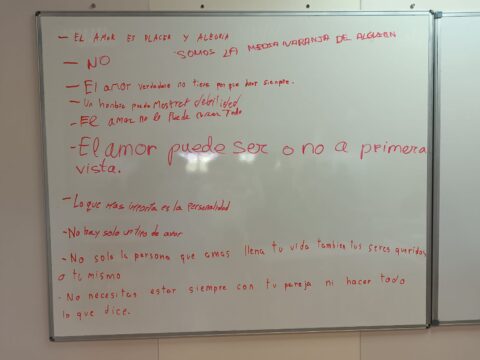 - EL AMOR ES PLACER Y ALEGRIA
SOMOS LA MEDIA NARANJA DE ALGUIEN
- NO
- El amor verdadero no tiene por que durar siempre.
- Un hombre puede Mostrar debilidad
- El amor no lo Puede curar Todo
- El amor puede ser o no a primera
vista.
- Lo que mas importa es la personalidad
- No hay solo un tipo de amor
- No solo la persona que amas llena tu vida tambien tus seres queridos
o tu mismo
- No necesitas estar siempre con tu pareja ni hacer todo
lo que dice.